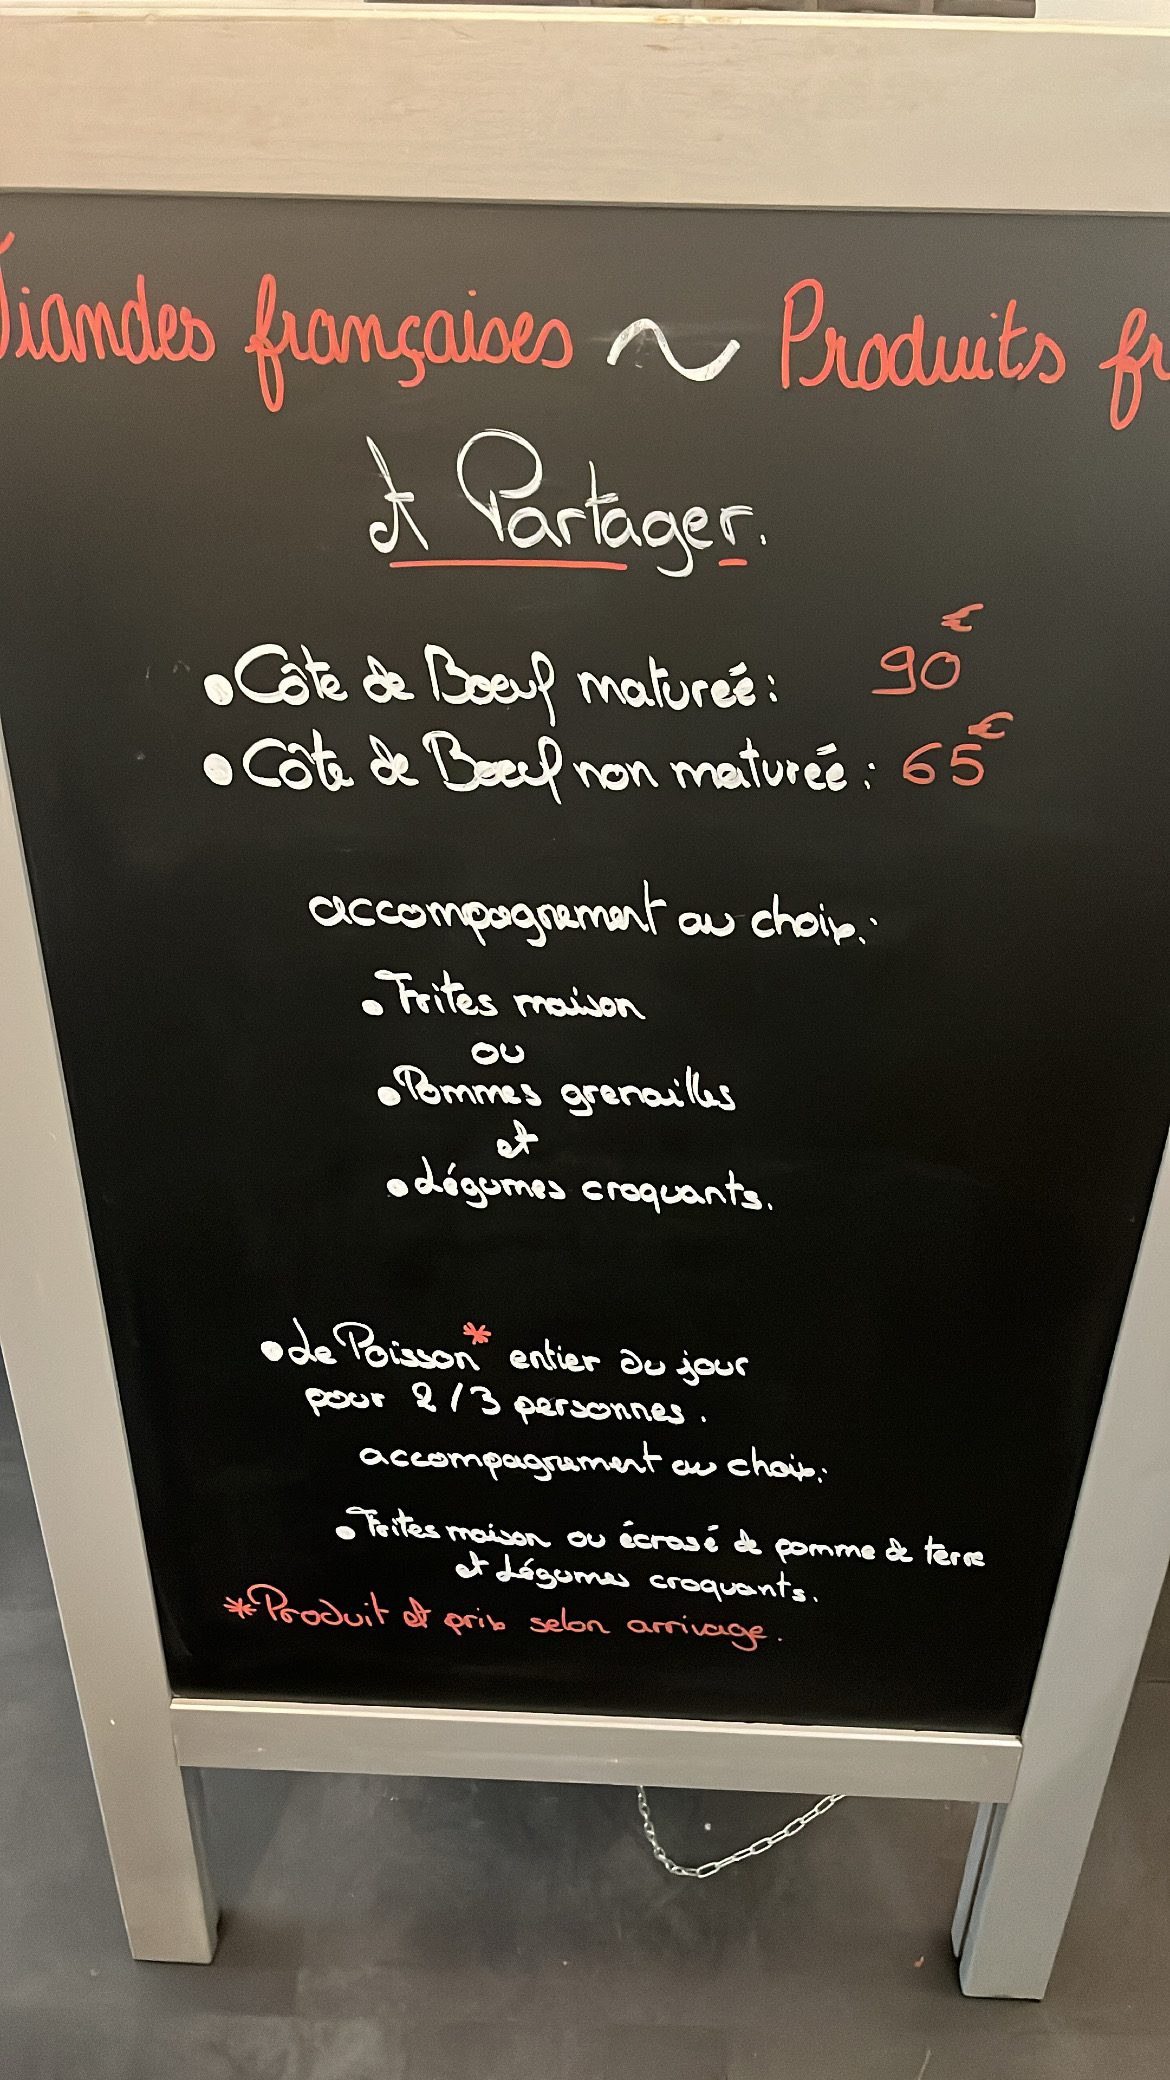 Viandes françaises ~ Produits fr
A Partager.
• Côte de Boeuf matureé : 90€
• Côte de Boeuf non maturéé : 65€
accompagnement au choix :
• Frites maison
ou
• Pommes grenailles
et
• Légumes croquants.
• Le Poisson* entier du jour
pour 2/3 personnes.
accompagnement au choix :
• Frites maison ou écrasé de pomme de terre
et Légumes croquants.
*Produit et prix selon arrivage.